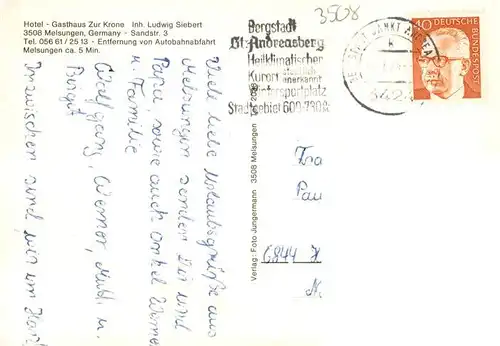 Hotel - Gasthaus Zur Krone   Inh. Ludwig Siebert
3508 Melsungen, Germany - Sandstr. 3
Tel. 056 61 / 25 13 - Entfernung von Autobahnabfahrt
Melsungen ca. 5 Min.
Viele liebe Urlaubsgrüße aus
Melsungen senden Dir und
Papa, sowie auch Onkel Werner
u. Familie
Wolfgang, Werner, Mutti u.
Birgit
Inzwischen sind wir im Harz
Verlag: Foto Jungermann 3508 Melsungen
3508
Bergstadt
St. Andreasberg
Heilklimatischer
Kurort staatlich anerkannt
Wintersportplatz
Stadtgebiet 600-
SANKT ANDREA
40 DEUTSCHE
BUNDESPOST
6844